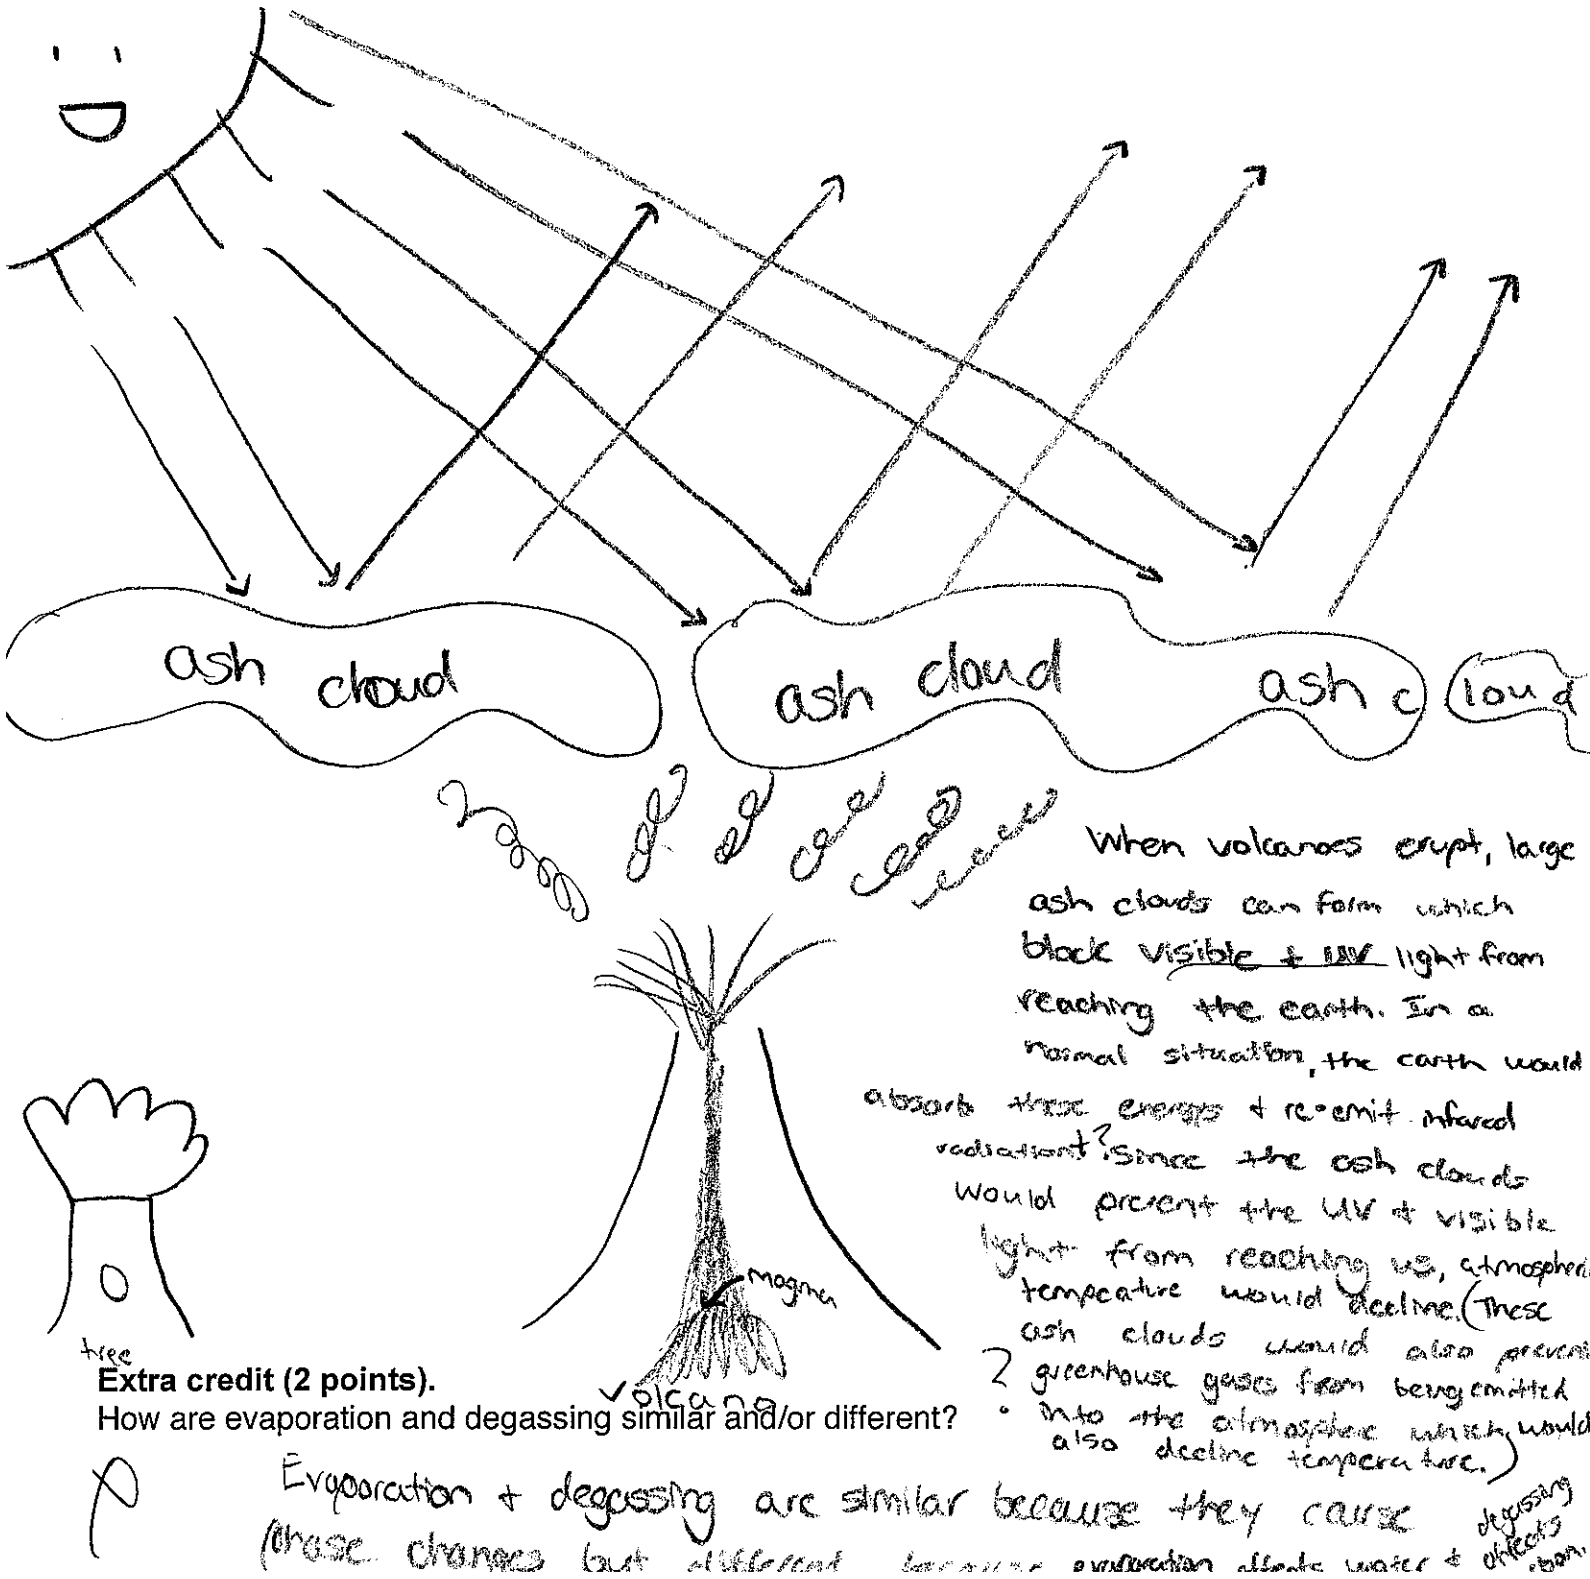 ash cloud
ash cloud ash c loud
When volcanoes erupt, large
ash clouds can form which
block visible + UV light from
reaching the earth. In a
normal situation, the earth would
absorb these energys + re-emit infared
radiation ? Since the ash clouds
would prevent the UV + visible
light from reaching us, atmospheric
tempeature would decline. (These
ash clouds would also prevent
? greenhouse gases from being emitted
into the atmosphere which would
also decline temperature.)
magma
tree
volcano
Extra credit (2 points).
How are evaporation and degassing similar and/or different?
Evaporation + degassing are similar because they cause
phase changes but different because evaporation affects water + degassing
affects